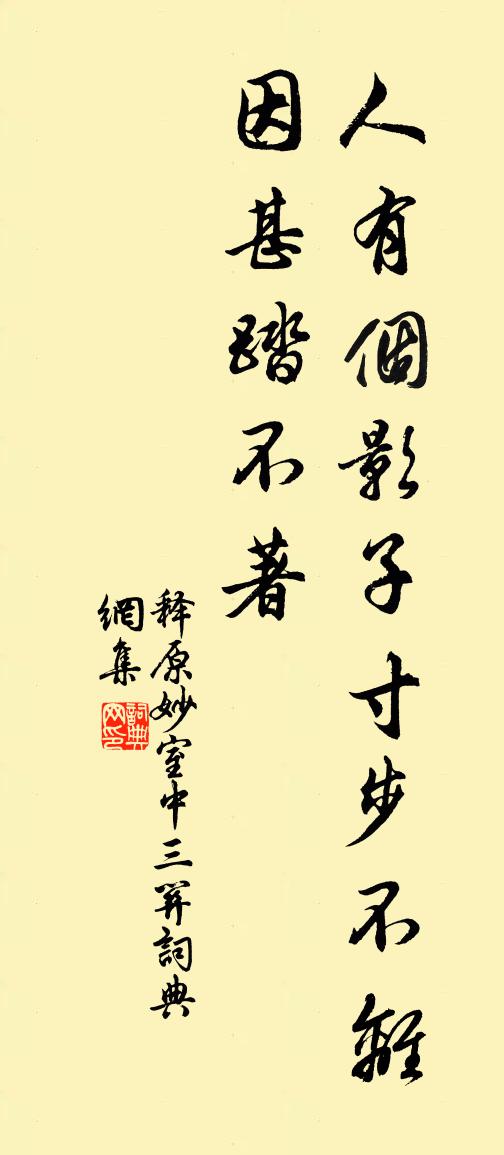 人有個影子寸步不離
因甚踏不著
释原妙室中三關詞典
網集
詞典网印